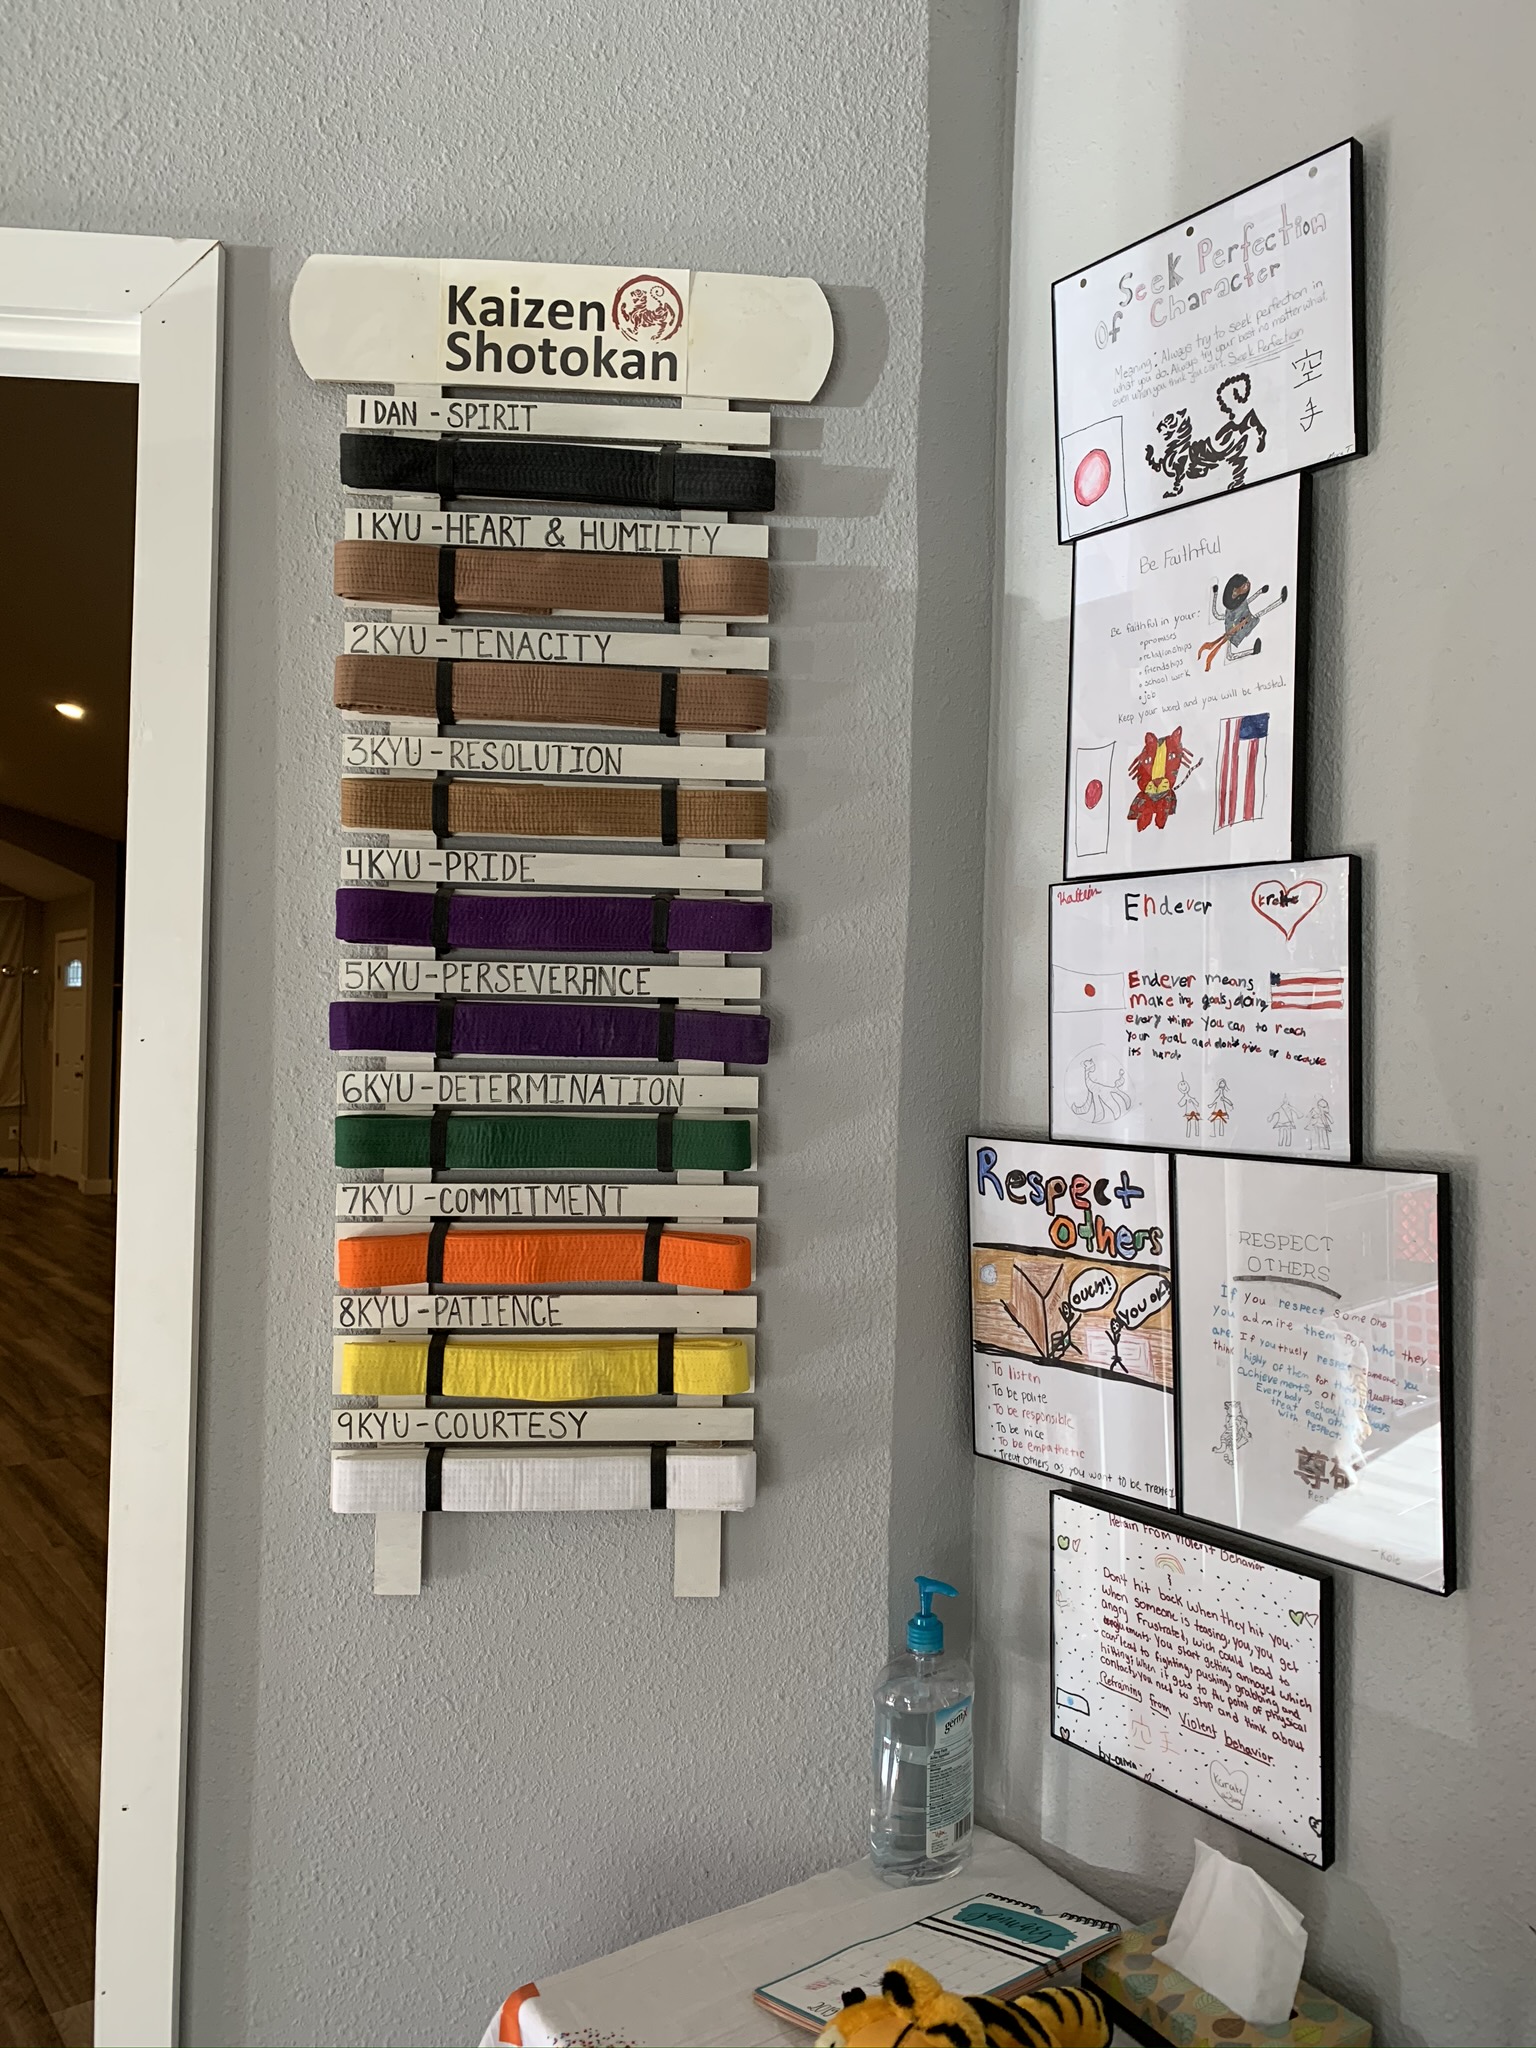 Kaizen
Shotokan
1 DAN - SPIRIT
1 KYU - HEART & HUMILITY
2KYU - TENACITY
3KYU - RESOLUTION
4KYU - PRIDE
5KYU - PERSEVERANCE
6KYU - DETERMINATION
7KYU - COMMITMENT
8KYU - PATIENCE
9KYU - COURTESY
Seek Perfection
Of Character
Meaning: Always try to seek perfection in
what you do. Always try your best no matter what,
even when you think you can't. Seek Perfection
空
手
Be Faithful
Be faithful in your:
• promises
• relationships
• friendships
• school work
• job
Keep your word and you will be trusted.
Kaitlin
Endever
Endever means
make ing goals, doing
every thing you can to reach
your goal and don't give up because
its hard.
Respect
Others
OUCH!!
YOU OK?
• To listen
• To be polite
• To be responsible
• To be nice
• To be empathetic
• Treat others as you want to be treated
RESPECT
OTHERS
If you respect someone
you admire them for who they
are. If you truely respect someone, you
think highly of them for their qualities,
achievements, or
Everybody should
treat each other always
with respect.
尊
- Kole
Refrain From Violent Behavior
Don't hit back when they hit you.
when someone is teasing, you, you get
angry, Frustrated, wich could lead to
You start getting annoyed which
can lead to fighting, pushing, grabbing and
hitting; when it gets to the point of physical
contact, you need to stop and think about
Refraining from Violent behavior
空手
by-Olivia
Karate
germx